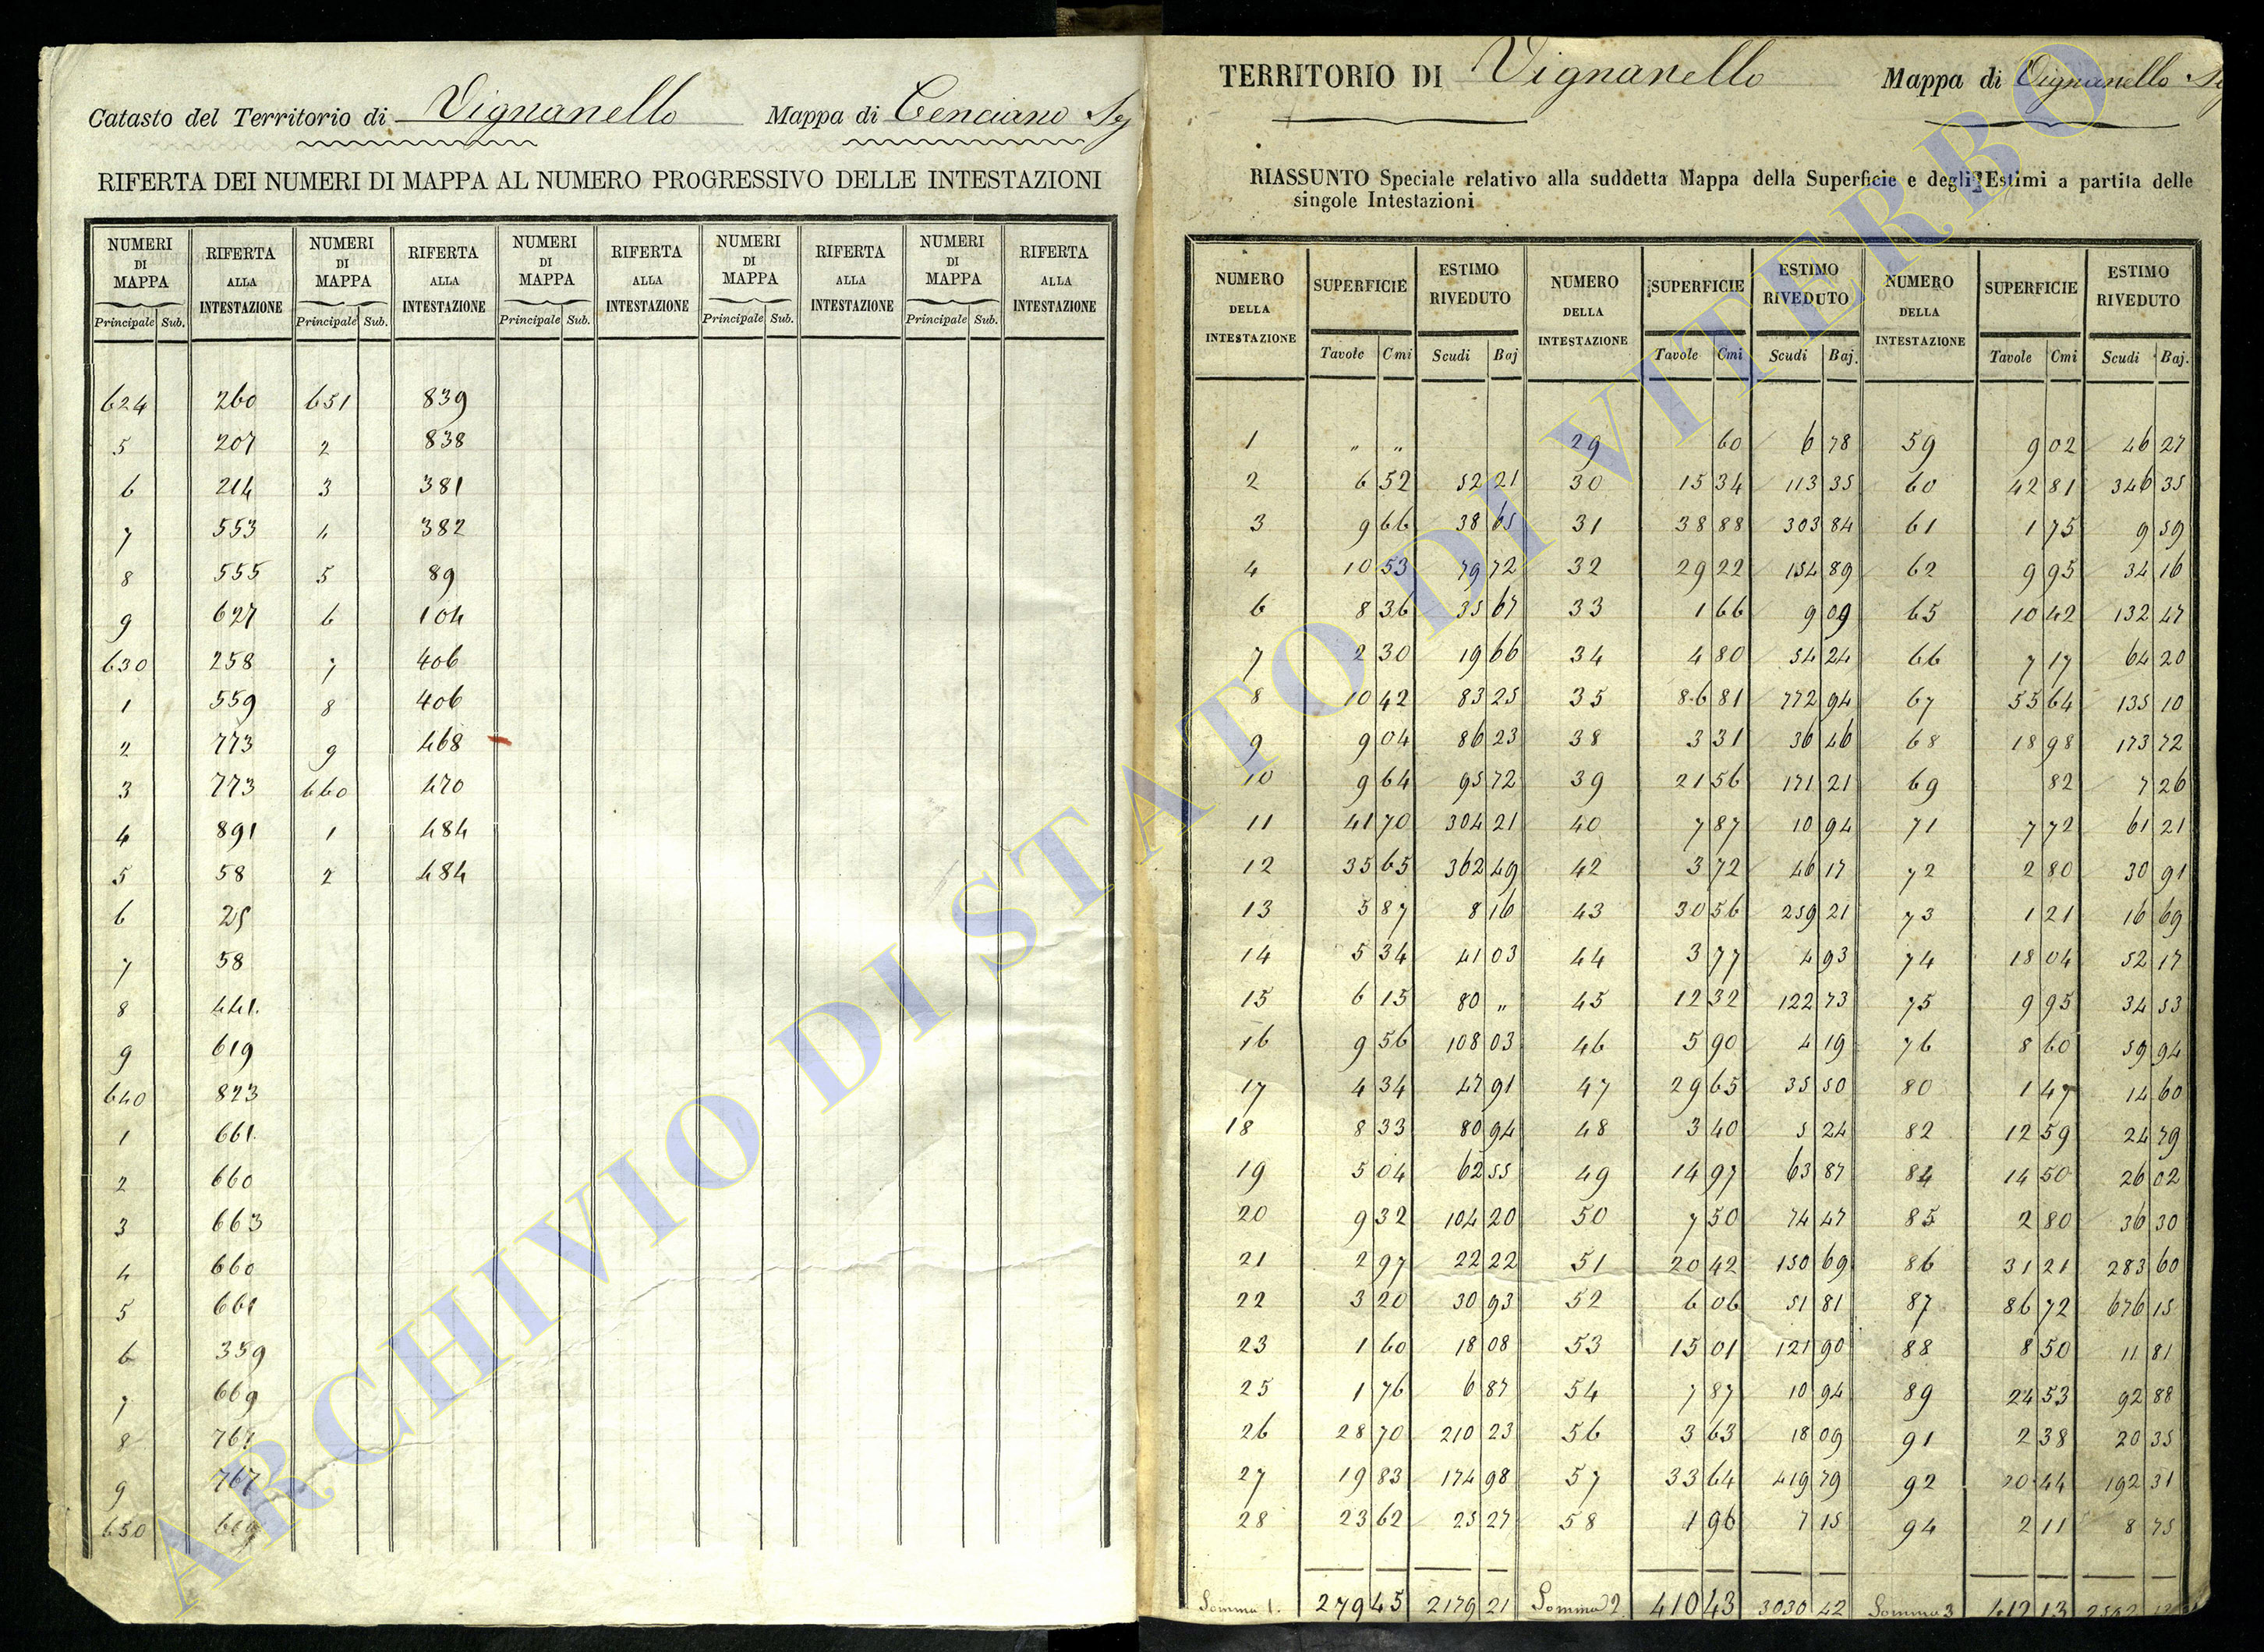 Catasto del Territorio di Vignanello Mappa di Cenciano
RIFERTA DEI NUMERI DI MAPPA AL NUMERO PROGRESSIVO DELLE INTESTAZIONI
NUMERI DI MAPPA RIFERTA ALLA INTESTAZIONE NUMERI DI MAPPA RIFERTA ALLA INTESTAZIONE NUMERI DI MAPPA RIFERTA ALLA INTESTAZIONE NUMERI DI MAPPA RIFERTA ALLA INTESTAZIONE NUMERI DI MAPPA RIFERTA ALLA INTESTAZIONE
Principale Sub. Principale Sub. Principale Sub. Principale Sub. Principale Sub.
624 260 651 839
5 207 2 838
6 214 3 381
7 553 4 382
8 555 5 89
9 627 6 104
630 258 7 406
1 559 8 406
2 773 9 468
3 773 660 470
4 891 1 484
5 58 2 484
6 25
7 58
8 441.
9 619
640 823
1 661.
2 660
3 663
4 660
5 661
6 359
7 669
8 767
9 767
650 669
TERRITORIO DI Vignanello Mappa di Vignanello
RIASSUNTO Speciale relativo alla suddetta Mappa della Superficie e degli Estimi a partita delle
singole Intestazioni
NUMERO DELLA INTESTAZIONE SUPERFICIE ESTIMO RIVEDUTO NUMERO DELLA INTESTAZIONE SUPERFICIE ESTIMO RIVEDUTO NUMERO DELLA INTESTAZIONE SUPERFICIE ESTIMO RIVEDUTO
Tavole Cmi Scudi Baj Tavole Cmi Scudi Baj. Tavole Cmi Scudi Baj.
1 " " 29 60 6 78 59 9 02 46 27
2 6 52 52 21 30 15 34 113 35 60 42 81 346 35
3 9 66 38 65 31 38 88 303 84 61 1 75 9 59
4 10 53 79 72 32 29 22 154 89 62 9 95 34 16
6 8 36 35 67 33 1 66 9 09 65 10 42 132 47
7 2 30 19 66 34 4 80 54 24 66 7 17 64 20
8 10 42 83 25 35 86 81 772 94 67 55 64 135 10
9 9 04 86 23 38 3 31 36 46 68 18 98 173 72
10 9 64 95 72 39 21 56 171 21 69 82 7 26
11 41 70 304 21 40 7 87 10 94 71 7 72 61 21
12 35 65 362 49 42 3 72 46 17 72 2 80 30 91
13 5 87 8 16 43 30 56 259 21 73 1 21 16 69
14 5 34 41 03 44 3 77 4 93 74 18 04 52 17
15 6 15 80 " 45 12 32 122 73 75 9 95 34 53
16 9 56 108 03 46 5 90 4 19 76 8 60 59 94
17 4 34 47 91 47 29 65 35 50 80 1 47 14 60
18 8 33 80 94 48 3 40 5 24 82 12 59 24 79
19 5 04 62 55 49 14 97 63 87 84 14 50 26 02
20 9 32 104 20 50 7 50 74 47 85 2 80 36 30
21 2 97 22 22 51 20 42 150 69 86 31 21 283 60
22 3 20 30 93 52 6 06 51 81 87 86 72 676 15
23 1 60 18 08 53 15 01 121 90 88 8 50 11 81
25 1 76 6 87 54 7 87 10 94 89 24 53 92 88
26 28 70 210 23 56 3 63 18 09 91 2 38 20 35
27 19 83 174 98 57 33 64 419 79 92 20 44 192 31
28 23 62 25 27 58 1 96 7 15 94 2 11 8 75
Somma 1. 279 45 2179 21 Somma 2 410 43 3030 42 Somma 3 412 13
ARCHIVIO DI STATO DI VITERBO